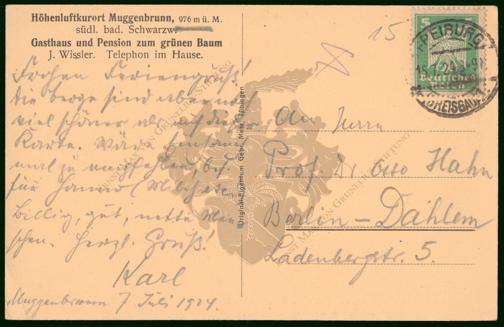 Höhenluftkurort Muggenbrunn, 976 m ü. M.
südl. bad. Schwarzw.
Gasthaus und Pension zum grünen Baum
J. Wissler. Telephon im Hause.
Frohen Feriengruß!
die berge sind
viel schöner als auf dieser
Karte. Wäre
mal zu
für Januar
billig, gut, nette Men
schen. Herzl. Gruß!
Karl
Muggenbrunn 7 Juli 1924.
Original-Eigentum Gebr. Metz, Tübingen
15
FREIBURG
BREISGAU
5
Deutsches
Reich
An Herrn
Prof Dr. Otto Hahn
Berlin-Dahlem
Ladenbergstr. 5.